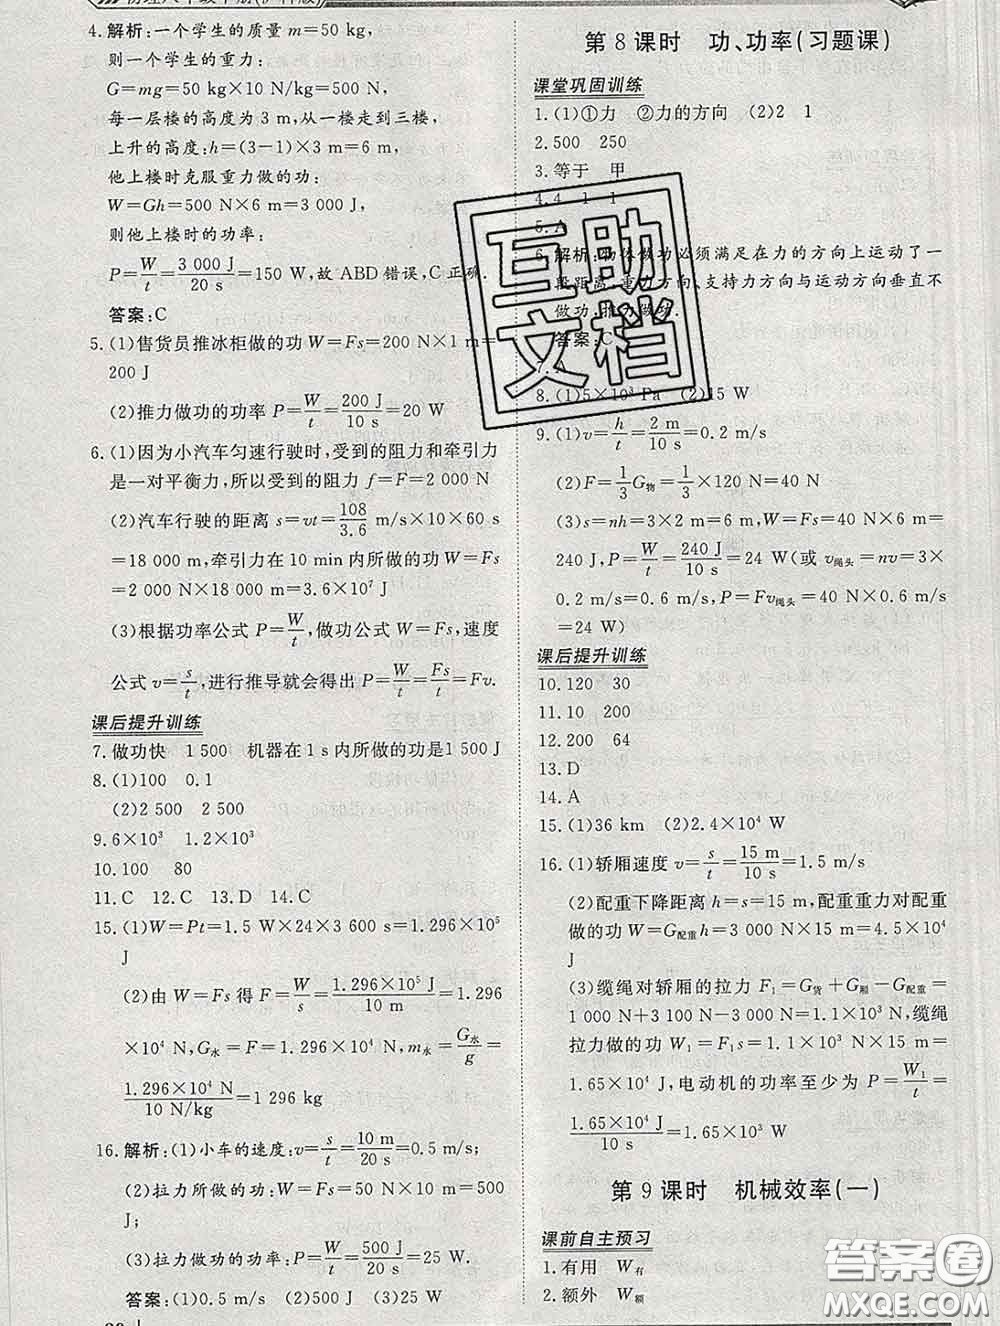 4.解析:一个学生的质量 m=50 kg,
则一个学生的重力:
G=mg=50 kg×10 N/kg=500 N,
每一层楼的高度为 3 m,从一楼走到三楼,
上升的高度:h=(3-1)×3 m=6 m,
他上楼时克服重力做的功:
W=Gh=500 N×6 m=3 000 J,
则他上楼时的功率:
P=W/t=3 000 J/20 s=150 W,故 ABD 错误,C 正确.
答案:C
5.(1)售货员推冰柜做的功W=Fs=200 N×1 m=
200 J
(2)推力做功的功率 P=W/t=200 J/10 s=20 W
6.(1)因为小汽车匀速行驶时,受到的阻力和牵引力
是一对平衡力,所以受到的阻力 f=F=2 000 N
(2)汽车行驶的距离 s=vt=108/3.6 m/s×10×60 s
=18 000 m,牵引力在 10 min 内所做的功 W=Fs
=2 000 N×18 000 m=3.6×10⁷ J
(3)根据功率公式 P=W/t,做功公式 W=Fs,速度
公式 v=s/t,进行推导就会得出 P=W/t=Fs/t=Fv.
课后提升训练
7.做功快 1 500 机器在 1 s 内所做的功是1 500 J
8.(1)100 0.1
(2)2 500 2 500
9.6×10³ 1.2×10³
10.100 80
11.C 12.C 13.D 14.C
15.(1)W=Pt=1.5 W×24×3 600 s=1.296×10⁵
J
(2)由 W=Fs 得 F=W/s=1.296×10⁵ J/10 m=1.296
×10⁴ N,G水=F=1.296×10⁴ N,m水=G水/g=
1.296×10⁴ N/10 N/kg=1 296 kg
16.解析:(1)小车的速度:v=s/t=10 m/20 s=0.5 m/s;
(2)拉力所做的功:W=Fs=50 N×10 m=500
J;
(3)拉力做功的功率:P=W/t=500 J/20 s=25 W.
答案:(1)0.5 m/s (2)500 J (3)25 W
第 8 课时 功、功率(习题课)
课堂巩固训练
1.(1)①力 ②力的方向 (2)2 1
2.500 250
3.等于 甲
4.4 1 1
5.A
6.解析:物体做功必须满足在力的方向上运动了一
段距离,重力方向、支持力方向与运动方向垂直不
做功,推力做功.
答案:C
7.A
8.(1)5×10³ Pa (2)15 W
9.(1)v=h/t=2 m/10 s=0.2 m/s
(2)F=1/3G物=1/3×120 N=40 N
(3)s=nh=3×2 m=6 m,W=Fs=40 N×6 m=
240 J,P=W/t=240 J/10 s=24 W(或 v绳头=nv=3×
0.2 m/s=0.6 m/s,P=Fv绳头=40 N×0.6 m/s
=24 W)
课后提升训练
10.120 30
11.10 200
12.200 64
13.D
14.A
15.(1)36 km (2)2.4×10⁴ W
16.(1)轿厢速度 v=s/t=15 m/10 s=1.5 m/s
(2)配重下降距离 h=s=15 m,配重重力对配重
做的功 W=G配重h=3 000 N×15 m=4.5×10⁴
J
(3)缆绳对轿厢的拉力 F₁=G货+G厢-G配重=
1 000 N+3 100 N-3 000 N=1.1×10³ N,缆绳
拉力做的功 W₁=F₁s=1.1×10³ N×15 m=
1.65×10⁴ J,电动机的功率至少为 P=W₁/t=
1.65×10⁴ J/10 s=1.65×10³ W
第 9 课时 机械效率(一)
课前自主预习
1.有用 W有
2.额外 W额
互助
文档
答案圈
MXQE.COM